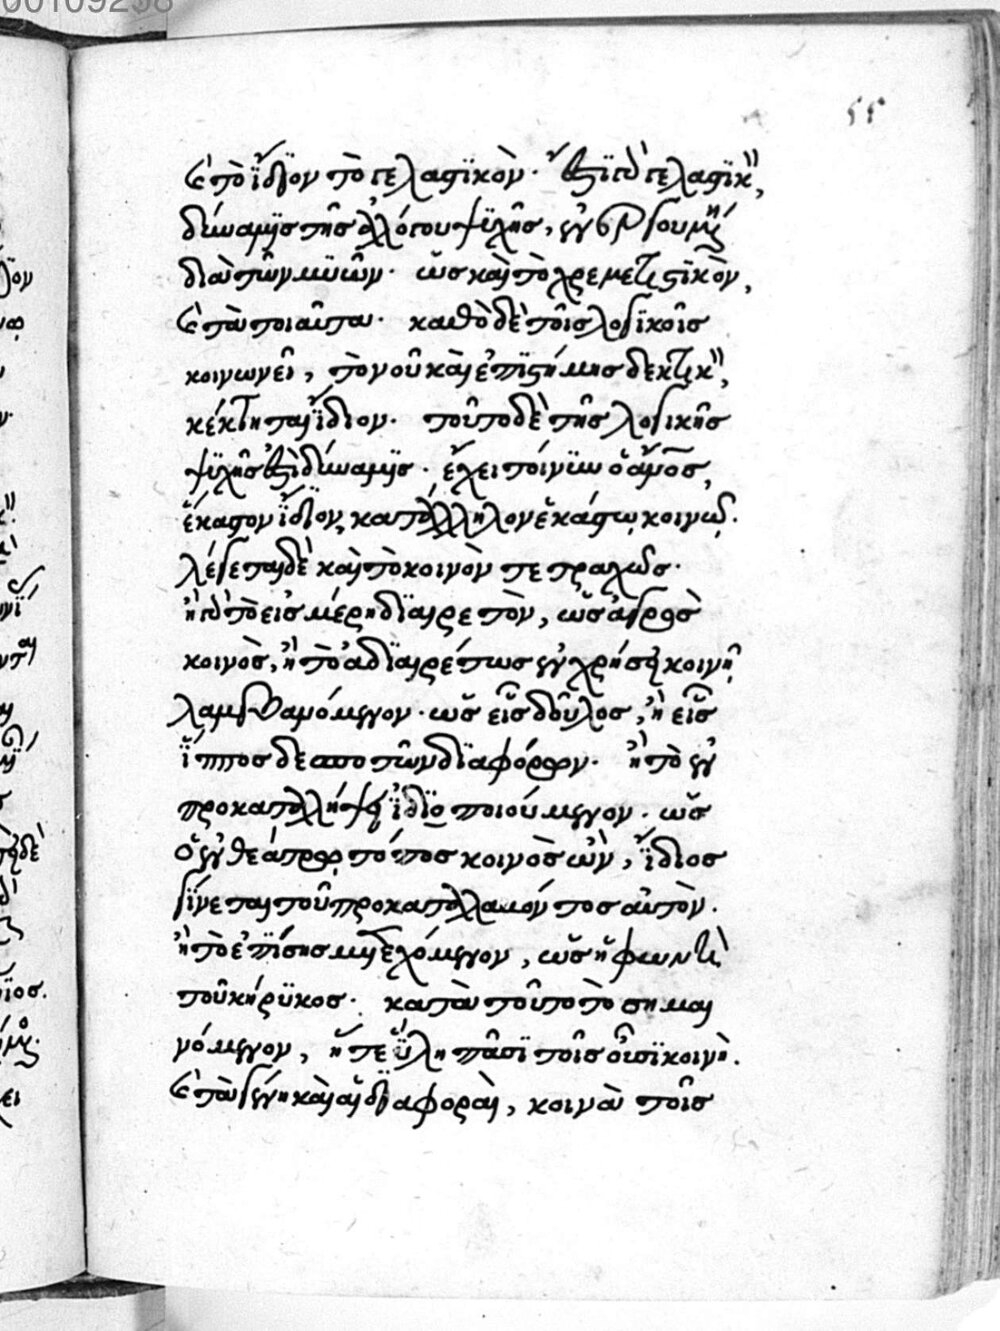 00109258
55
καὶ τὸ ἴδϊον τὸ γελαστϊκὸν· ἔστϊ τὸ γελαστϊκὸν,
δύναμϊς τῆς ἀλόγου ψϋχῆς, ἐνεργουμένη
διὰ τῶν μϋῶν· ὡς καὶ τὸ χρεμετιστϊκὸν,
καὶ τὰ τοιαῦτα· καθὸ δὲ τοῖς λογϊκοῖς
κοινωνεῖ, τὸ νοῦ καὶ ἐπϊστήμης δεκτικὸν,
κέκτηται ἴδιον· τοῦτο δὲ τῆς λογικῆς
ψϋχῆς ἐστὶ δύναμϊς· ἔχει τοίνϋν ὁ ἄνθρωπος,
ἕκαστον ἴδϊον, κατάλληλον ἑκάστῳ κοινῷ.
λέγεται δὲ καὶ τὸ κοινὸν τετραχῶς·
ἢ τὸ εἰς μέρη δϊαιρετὸν, ὡς ἀγρὸς
κοινὸς, ἢ τὸ ἀδϊαιρέτως ἐν χρήσει κοινῇ
λαμβαναμόμενον· ὡς εἷς δοῦλος, ἢ εἷς
ἵππος δεσποτῶν δϊαφόρων· ἢ τὸ ἐν
προκαταλήψει ἰδϊοποιούμενον· ὡς
ὁ ἐν θεάτρῳ τόπος κοινὸς ὢν, ἴδιος
γίνεται τοῦ προκαταλαμόντος αὐτὸν.
ἢ τὸ ἐπίσης μετεχόμενον, ὡς ἡ φωνὴ
τοῦ κήρϋκος· κατὰ τοῦτο τὸ σημαι
νόμενον, ἥ τε ὕλη πᾶσϊ τοῖς οὖσϊ κοινὴ.
καὶ τὰ γένη καὶ αἱ δϊαφοραὶ, κοινὰ τοῖς